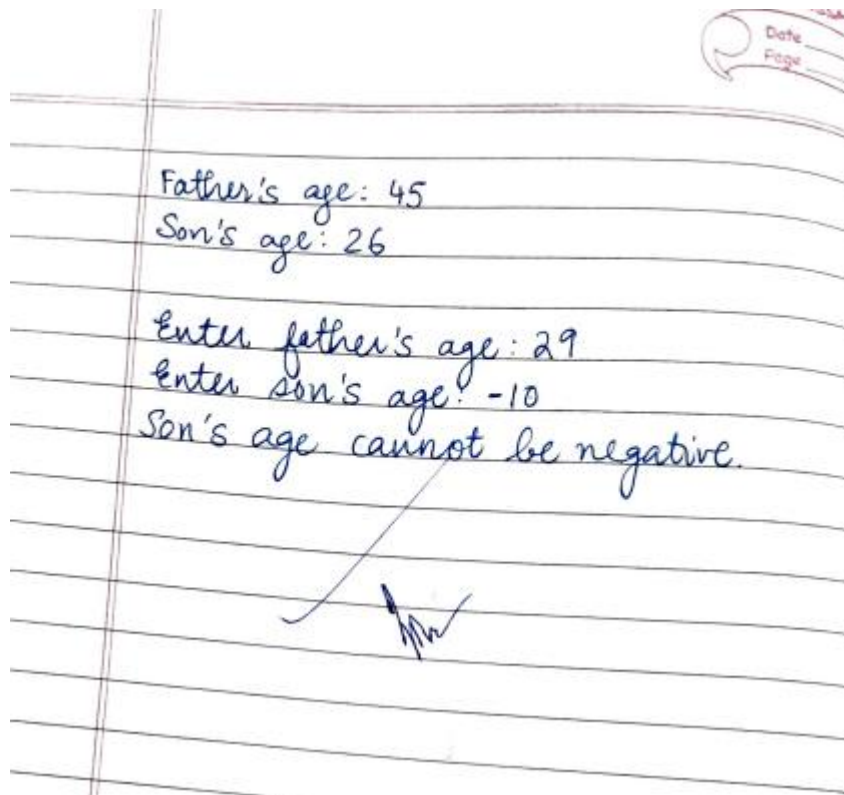 Date
Page
Father's age: 45
Son's age: 26
Enter father's age: 29
Enter son's age: -10
Son's age cannot be negative.